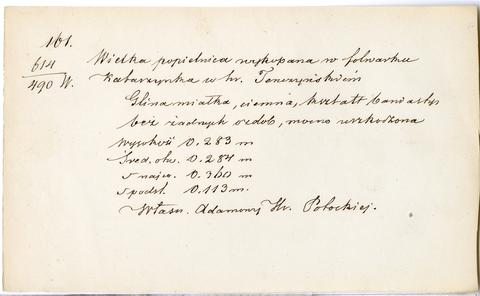 161.
614
490 W.
Wielka popielnica wykopana w folwarku
Katarzynka w hr. Tenczyńskiem
Glina miałka, ciemna, kształt baniasty
bez żadnych ozdób, mocno uszkodzona
Wysokość 0.283 m
Śred. otw. 0.284 m
s najw. 0.360 m
s podst. 0.113 m.
Własn. Adamowej Hr. Potockiej.